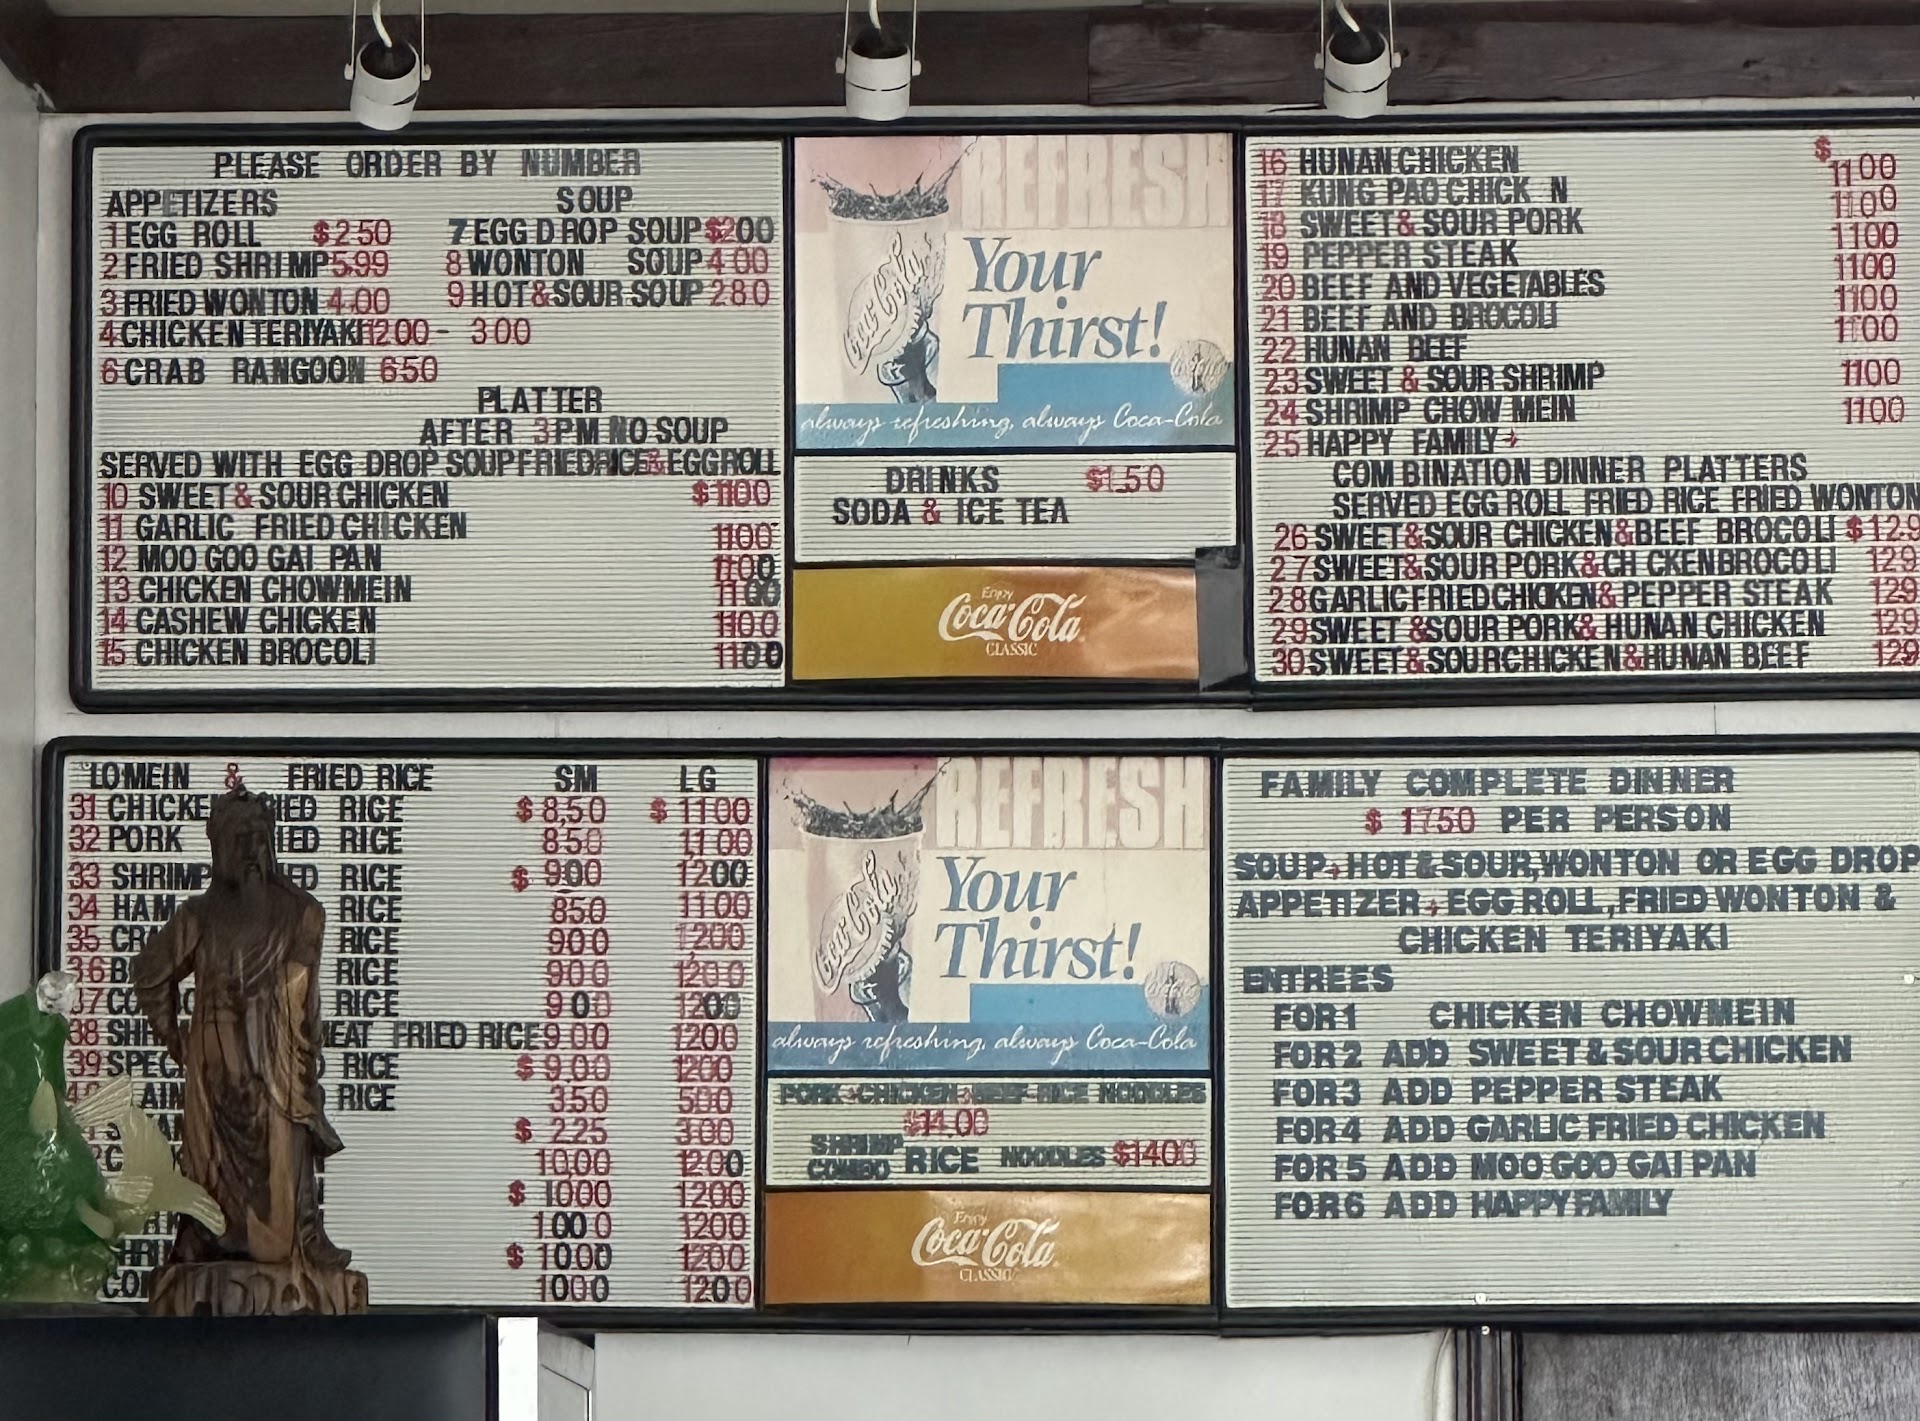 PLEASE ORDER BY NUMBER
APPETIZERS
1 EGG ROLL $2.50
2 FRIED SHRIMP 5.99
3 FRIED WONTON 4.00
4 CHICKEN TERIYAKI 12.00 - 3.00
6 CRAB RANGOON 6.50
SOUP
7 EGG DROP SOUP $2.00
8 WONTON SOUP 4.00
9 HOT & SOUR SOUP 2.80
PLATTER
AFTER 3PM NO SOUP
SERVED WITH EGG DROP SOUP FRIED RICE & EGG ROLL
10 SWEET & SOUR CHICKEN $1100
11 GARLIC FRIED CHICKEN 1100
12 MOO GOO GAI PAN 1100
13 CHICKEN CHOWMEIN 1100
14 CASHEW CHICKEN 1100
15 CHICKEN BROCOLI 1100
REFRESH
Your
Thirst!
Coca-Cola
always refreshing, always Coca-Cola
DRINKS $1.50
SODA & ICE TEA
Enjoy
Coca-Cola
CLASSIC
16 HUNAN CHICKEN $1100
17 KUNG PAO CHICK N 1100
18 SWEET & SOUR PORK 1100
19 PEPPER STEAK 1100
20 BEEF AND VEGETABLES 1100
21 BEEF AND BROCOLI 1100
22 HUNAN BEEF
23 SWEET & SOUR SHRIMP 1100
24 SHRIMP CHOW MEIN 1100
25 HAPPY FAMILY
COMBINATION DINNER PLATTERS
SERVED EGG ROLL FRIED RICE FRIED WONTON
26 SWEET & SOUR CHICKEN & BEEF BROCO LI $12.9
27 SWEET & SOUR PORK & CH CKEN BROCO LI 129
28 GARLIC FRIED CHICKEN & PEPPER STEAK 129
29 SWEET & SOUR PORK & HUNAN CHICKEN 129
30 SWEET & SOUR CHICKEN & HUNAN BEEF 129
LOMEIN & FRIED RICE SM LG
31 CHICKE IED RICE $8.50 $1100
32 PORK IED RICE 850 11.00
33 SHRIMP ED RICE $900 1200
34 HAM RICE 850 1100
35 CRA RICE 900 1200
36 B RICE 900 1200
37 CO RICE 900 1200
38 SHR MEAT FRIED RICE 900 1200
39 SPEC RICE $9.00 1200
AIN RICE 350 500
$2.25 300
10.00 1200
$1000 1200
1000 1200
$1000 1200
CO 1000 1200
REFRESH
Your
Thirst!
Coca-Cola
always refreshing, always Coca-Cola
PORK-CHICKEN-BEEF-RICE NOODLES
$14.00
SHRIMP
COMBO RICE NOODLES $1400
Enjoy
Coca-Cola
CLASSIC
FAMILY COMPLETE DINNER
$1750 PER PERSON
SOUP-HOT & SOUR, WONTON OR EGG DROP
APPETIZER-EGG ROLL, FRIED WONTON &
CHICKEN TERIYAKI
ENTREES
FOR 1 CHICKEN CHOWMEIN
FOR 2 ADD SWEET & SOUR CHICKEN
FOR 3 ADD PEPPER STEAK
FOR 4 ADD GARLIC FRIED CHICKEN
FOR 5 ADD MOO GOO GAI PAN
FOR 6 ADD HAPPY FAMILY